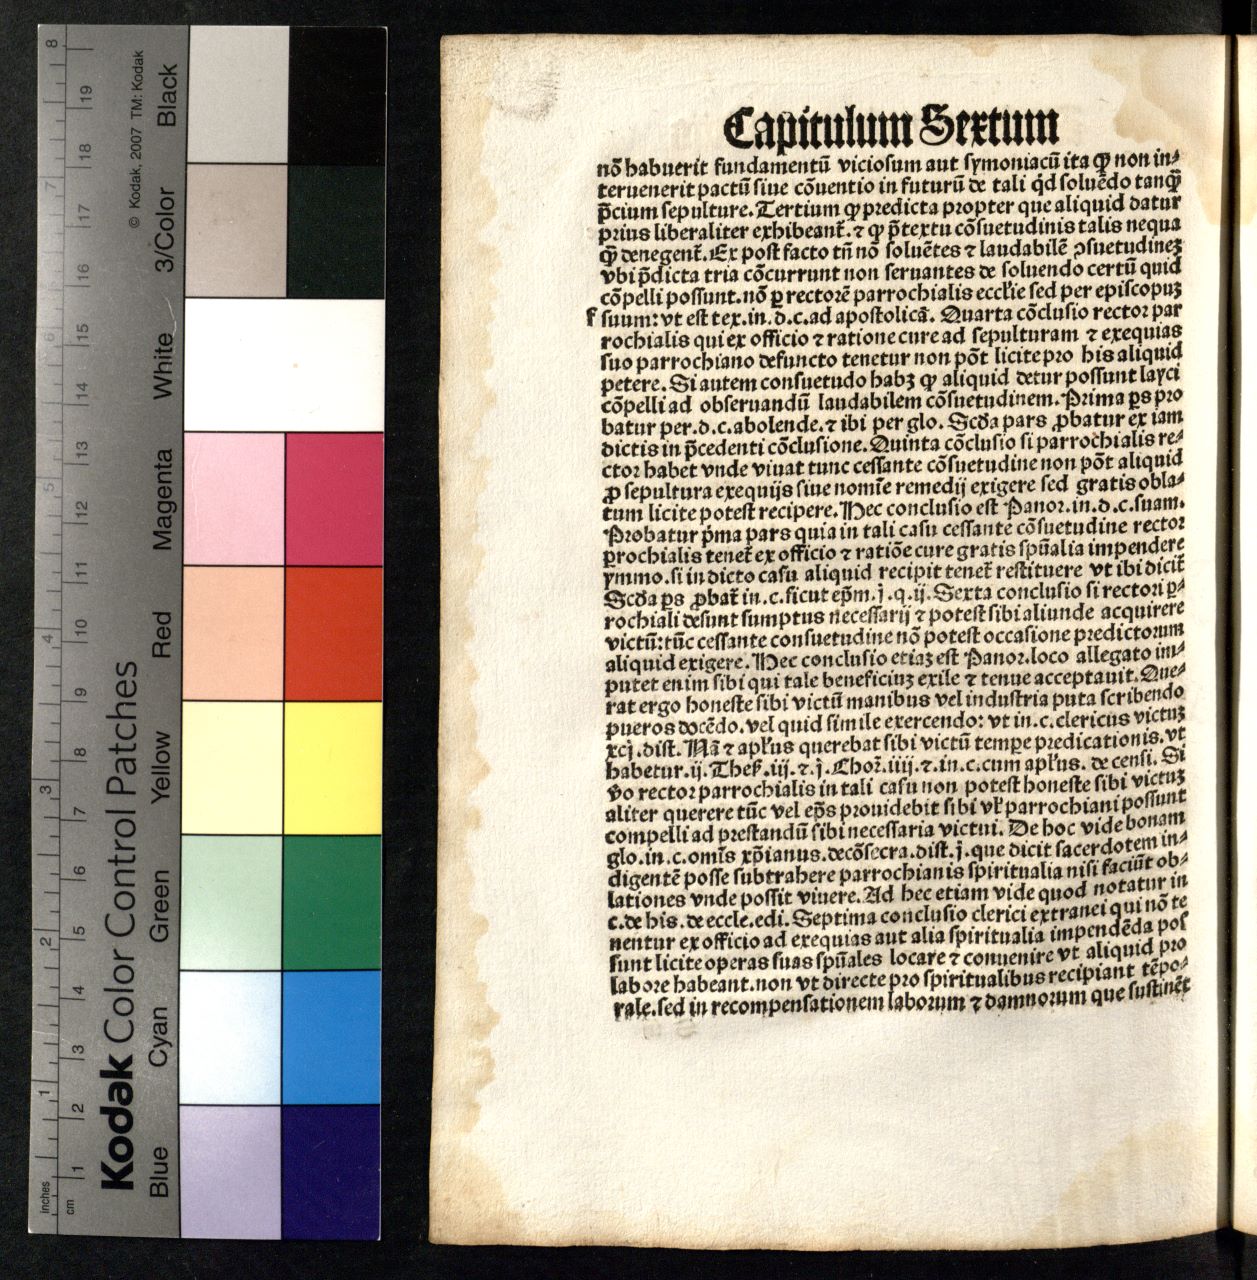 Capitulum Sextum
nō habuerit fundamentū viciosum aut symoniacū ita ꝙ non in⸗
teruenerit pactū siue cōuentio in futurū de tali q̇d soluēdo tanq̄ꝫ
p̄cium sepulture. Tertium ꝙ predicta propter que aliquid datur
prius liberaliter exhibeant̄. ⁊ ꝙ p̄textu cōsuetudinis talis nequa
q̄ꝫ denegent̄. Ex post facto tn̄ nō soluētes ⁊ laudabilē ↄsuetudineꝫ
vbi p̄dicta tria cōcurrunt non seruantes de soluendo certū quid
cōpelli possunt. nō ꝑ rectorē parrochialis eccl̄ie sed per episcopuꝫ
f suum: vt est tex. in. d. c. ad apostolicā. Quarta cōclusio rector par
rochialis qui ex officio ⁊ ratione cure ad sepulturam ⁊ exequias
suo parrochiano defuncto tenetur non pōt licite pro his aliquid
petere. Si autem consuetudo habꝫ ꝙ aliquid detur possunt layci
cōpelli ad obseruandū laudabilem cōsuetudinem. Prima ꝑs pro
batur per. d. c. abolende. ⁊ ibi per glo. Scd̄a pars ꝓbatur ex iam
dictis in p̄cedenti cōclusione. Quinta cōclusio si parrochialis re⸗
ctor habet vnde viuat tunc cessante cōsuetudine non pōt aliquid
ꝓ sepultura exequijs siue nomīe remedij exigere sed gratis obla⸗
tum licite potest recipere. Hec conclusio est Panor. in. d. c. suam.
Probatur p̄ma pars quia in tali casu cessante cōsuetudine rector
ꝑrochialis tenet̄ ex officio ⁊ ratiōe cure gratis spūalia impendere
ymmo. si in dicto casu aliquid recipit tenet̄ restituere vt ibi dicit̄
Scd̄a ꝑs ꝓbat̄ in. c. sicut ep̄m. j. q. ij. Sexta conclusio si rectori ꝑ⸗
rochiali desunt sumptus necessarij ⁊ potest sibi aliunde acquirere
victū: tūc cessante consuetudine nō potest occasione predictorum
aliquid exigere. Hec conclusio etiaꝫ est Panor. loco allegato im⸗
putet enim sibi qui tale beneficiuꝫ exile ⁊ tenue acceptauit. Que⸗
rat ergo honeste sibi victū manibus vel industria puta scribendo
pueros docēdo. vel quid simile exercendo: vt in. c. clericus victuꝫ
xcj. dist. Nā ⁊ apl̄us querebat sibi victū tempe predicationis. vt
habetur. ij. Thes̄. iij. ⁊. j. Chor̄. iiij. ⁊. in. c. cum apl̄us. de censi. Si
v̄o rector parrochialis in tali casu non potest honeste sibi victuꝫ
aliter querere tūc vel ep̄s prouidebit sibi vl̄ parrochiani possunt
compelli ad prestandū sibi necessaria victui. De hoc vide bonam
glo. in. c. omīs xp̄ianus. de cōsecra. dist. j. que dicit sacerdotem in⸗
digentē posse subtrahere parrochianis spiritualia nisi faciūt ob⸗
lationes vnde possit viuere. Ad hec etiam vide quod notatur in
c. de his. de eccle. edi. Septima conclusio clerici extranei qui nō te
nentur ex officio ad exequias aut alia spiritualia impendēda pos
sunt licite operas suas spūales locare ⁊ conuenire vt aliquid pro
labore habeant. non vt directe pro spiritualibus recipiant tēpo⸗
rale. sed in recompensationem laborum ⁊ damnorum que sustinēt
Kodak Color Control Patches
© Kodak, 2007 TM: Kodak
Blue Cyan Green Yellow Red Magenta White 3/Color Black
inches 1 2 3 4 5 6 7 8
cm 1 2 3 4 5 6 7 8 9 10 11 12 13 14 15 16 17 18 19